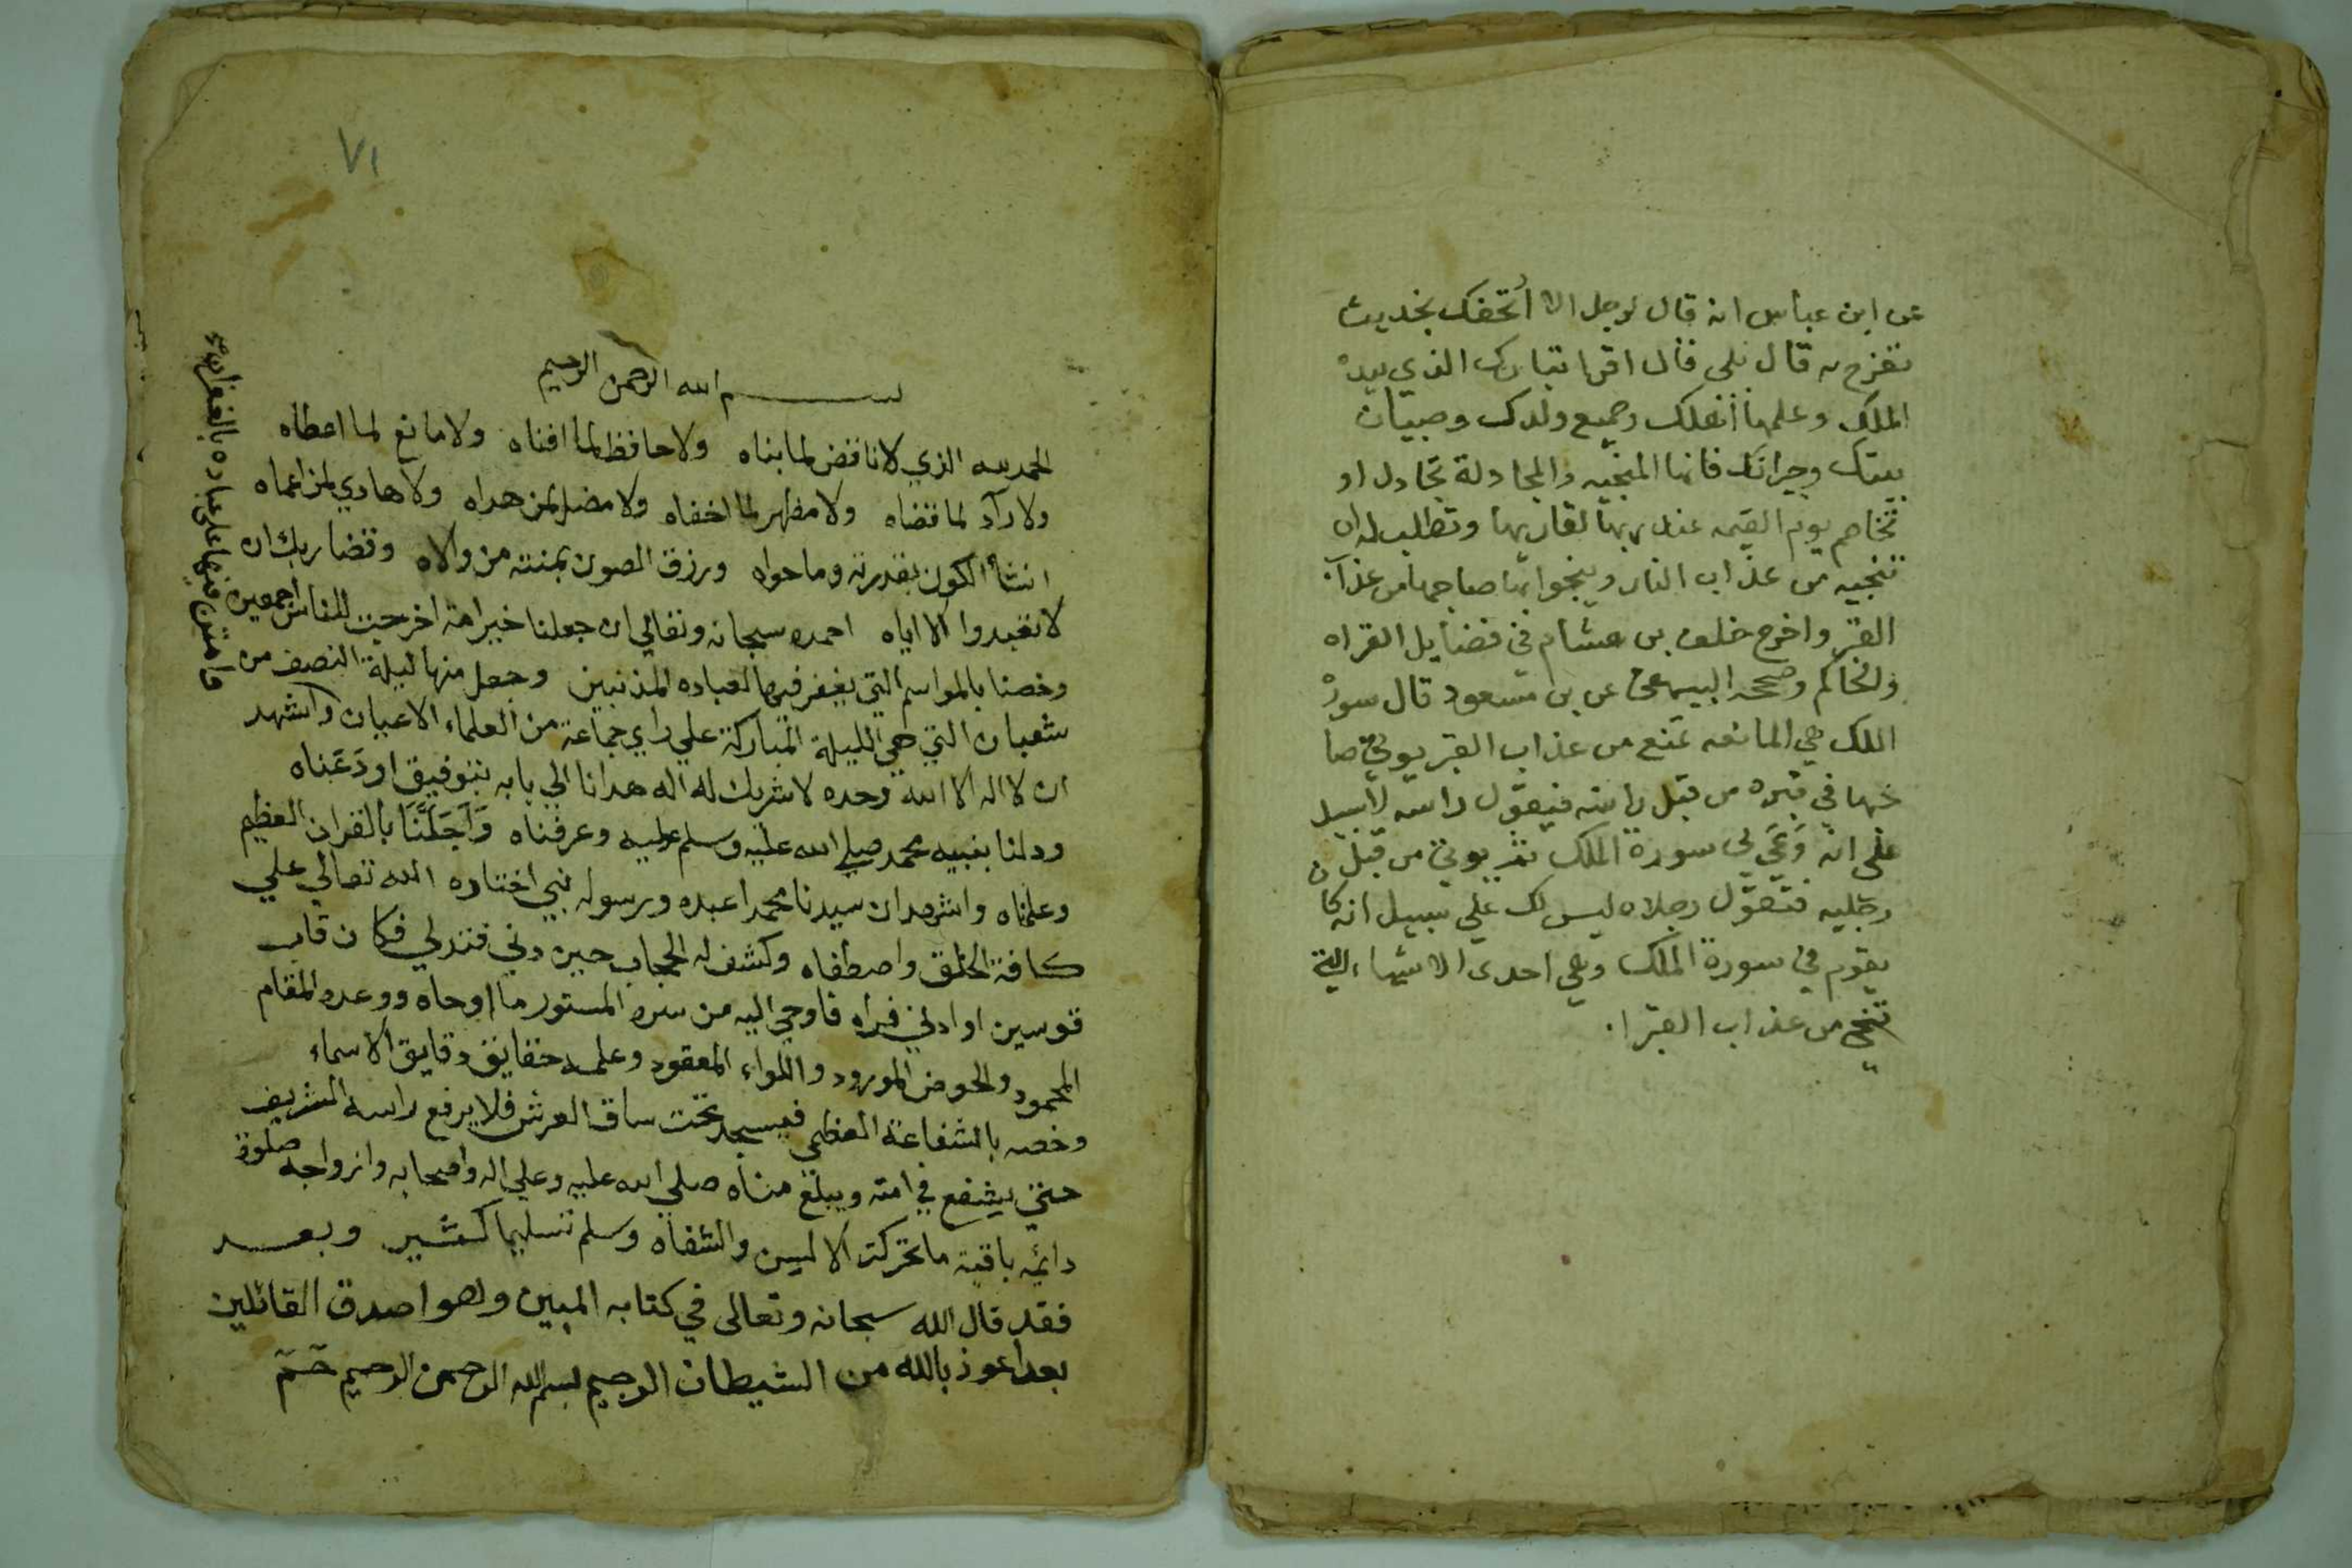 عن ابن عباس انه قال لرجل الا أتحفك بحديث
تفرح به قال بلى قال اقرا تبارك الذي بيده
الملك وعلمها أهلك وجميع ولدك وصبيان
بيتك وجيرانك فانها المنجيه والمجادلة تجادل او
تخاصم يوم القيمه عند ربها لقاريها وتطلب له ان
تنجيه من عذاب النار وينجوا بها صاحبها من عذاب
القبر واخرج خلف بن هشام في فضايل القران
والحاكم وصححه البيهقي عن بن مسعود قال سورة
الملك هي المانعه تمنع من عذاب القبر يوتي صا
حبها في قبره من قبل راسه فيقول راسه لاسبيل
على انه وَعَي لي سورة الملك ثم يوتي من قبل
رجليه فتقول رجلاه ليس لك علي سبيل انه كان
يقوم في سورة الملك وهي احدى الاشياء التي
تنجي من عذاب القبر ا.
٧١
بسم الله الرحمن الرحيم
الحمد لله الذي لا ناقض لما بناه ولا حافظ لما افناه ولا مانع لما اعطاه
ولا رآد لما قضاه ولا مظهر لما اخفاه ولا مضل لمن هداه ولا هادي لمن اعماه
انشأ الكون بقدرته وما حواه ورزق المصون بمنته من والاه وقضا ربك ان
لا تعبدوا الا اياه احمده سبحانه وتعالي ان جعلنا خير امة اخرجت للناس اجمعين
وخصنا بالمواسم التي يغفر فيها لعباده المذنبين وجعل منها ليلة النصف من
شعبان التي هي الليلة المباركة علي راي جماعة من العلماء الاعيان واشهد
ان لا اله الا الله وحده لا شريك له اله هدانا الي بابه بتوفيق اودَعَناه
ودلنا بنبيه محمد صلي الله عليه وسلم عليه وعرفناه وَاَجَلَّنَا بالقران العظيم
وعلمناه واشهد ان سيدنا محمدا عبده ورسوله نبي اختاره الله تعالي علي
كافة الخلق واصطفاه وكشف له الحجاب حين دني فتدلي فكان قاب
قوسين او ادني فراه فاوحي اليه من سره المستور ما اوحاه ووعده المقام
المحمود والحوض المورود واللواء المعقود وعلمه حقايق دقايق الاسماء
وخصه بالشفاعة العظمي فيسجد تحت ساق العرش فلا يرفع راسه الشريف
حتي يشفع في امته ويبلغ مناه صلي الله عليه وعلي اله واصحابه وازواجه صلوة
دائمه باقية ما تحركت الالسن والشفاه وسلم تسليما كثير وبعد
فقد قال الله سبحانه وتعالى في كتابه المبين وهو اصدق القائلين
بعد اعوذ بالله من الشيطان الرجيم بسم الله الرحمن الرحيم حٓمٓ
فامتن فيها على عباده بالغفران